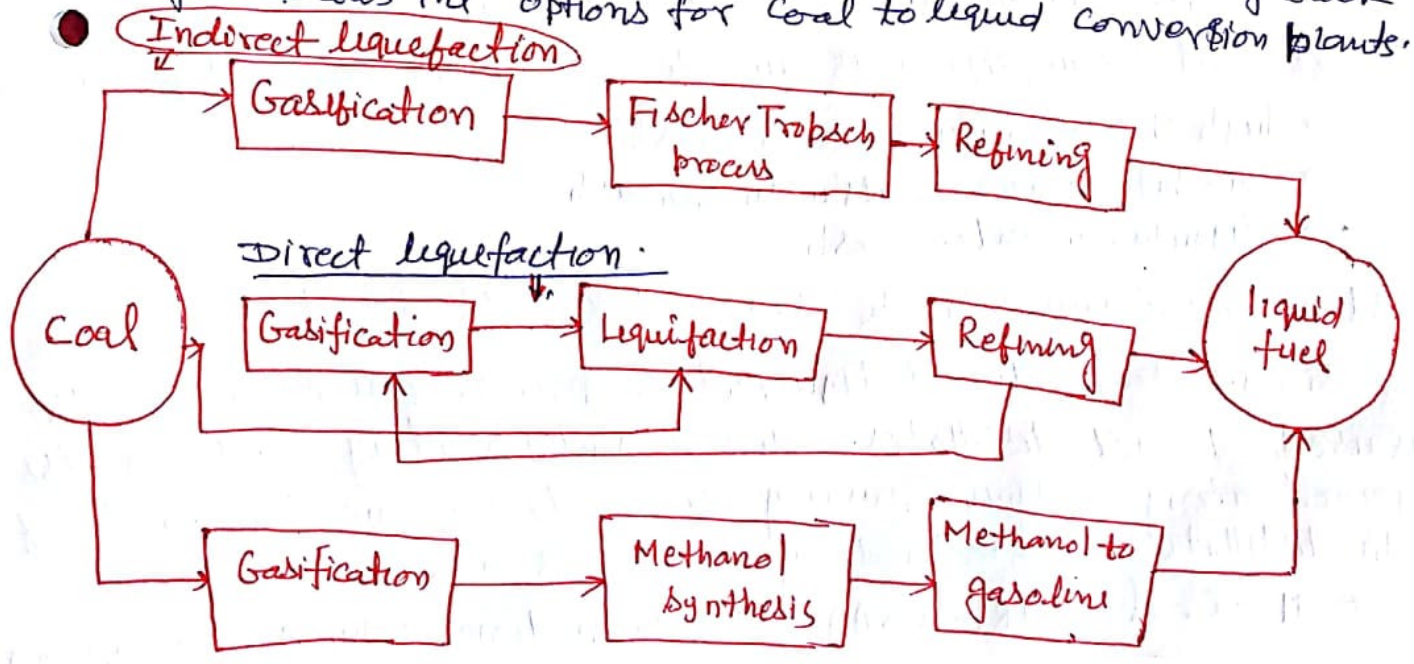 options for Coal to liquid conversion plants.
Indirect liquefaction
Gasification
Fischer Tropsch
process
Refining
Direct liquefaction.
Coal
Gasification
Liquifaction
Refining
liquid
fuel
Gasification
Methanol
synthesis
Methanol to
gasoline